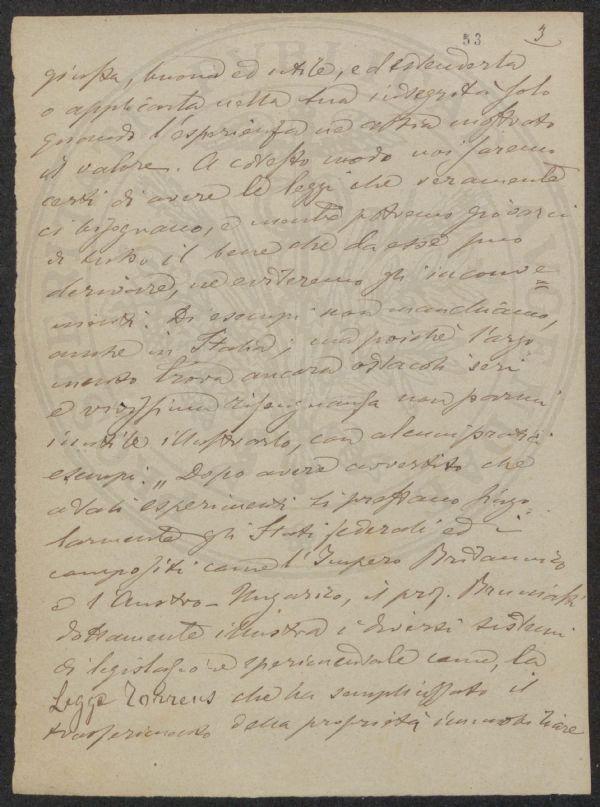 53 3
giusta, buona ed utile, ed estenderla
o applicarla nella sua integrità solo
quando l'esperienza ne abbia mostrato
il valore. A codesto modo noi saremo
certi di avere le leggi che veramente
ci bisognano, e mentre potremo giovarci
di tutto il bene che da esse può
derivare, ne eviteremo gli inconve=
nienti. Di esempi non manchiamo,
anche in Italia; ma poichè l'argo
mento trova ancora ostacoli seri
e vivissima ripugnanza non parmi
inutile illustrarlo, con alcuni pratici
esempi." Dopo avere avvertito che
a tali esperimenti si prestano singo
larmente gli Stati federali ed i
compositi come l'Impero Britannico
e l'Austro-Ungarico, il prof. Brunialti
dottamente illustra i diversi sistemi
di legislazione sperimentale come, la
Legge Torrens che ha semplificato il
trasferimento della proprietà immobiliare